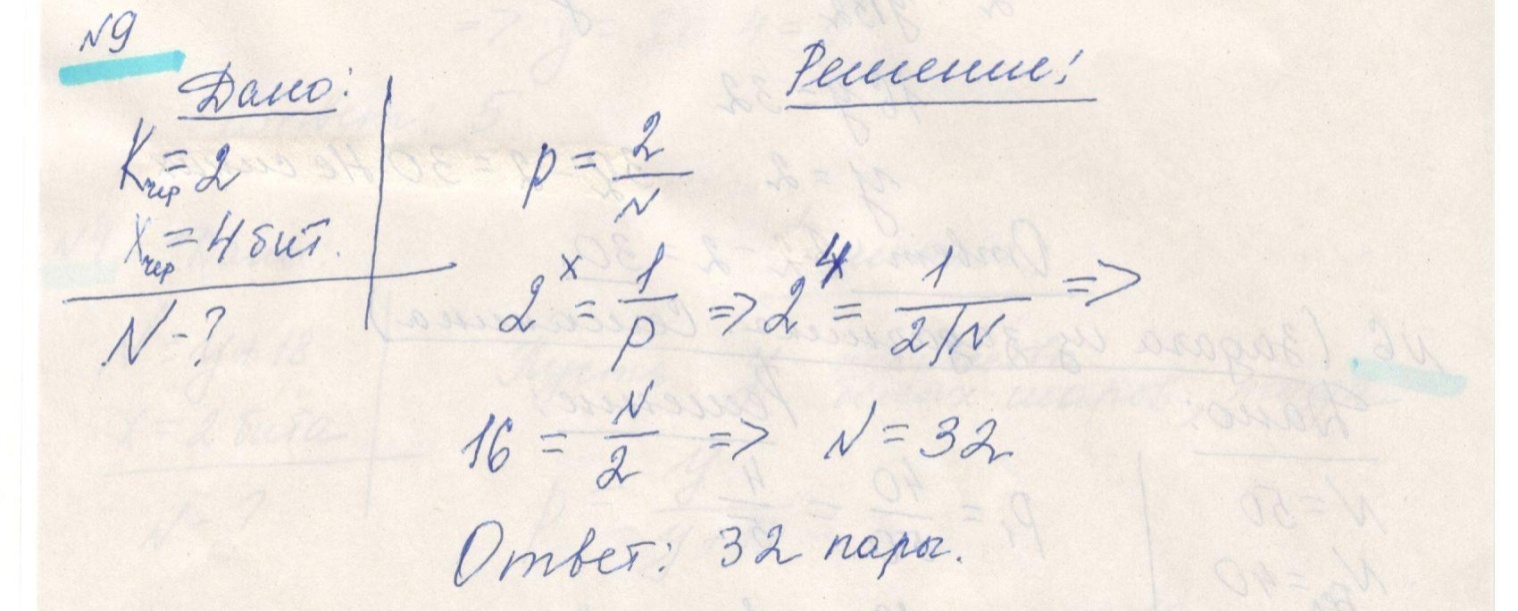 №9
Дано:
Kчер = 2
Xчер = 4 бит.
N - ?
Решение:
p = 2/N
2^x = 1/p => 2^4 = 1/(2/N) =>
16 = N/2 => N = 32
Ответ: 32 пары.